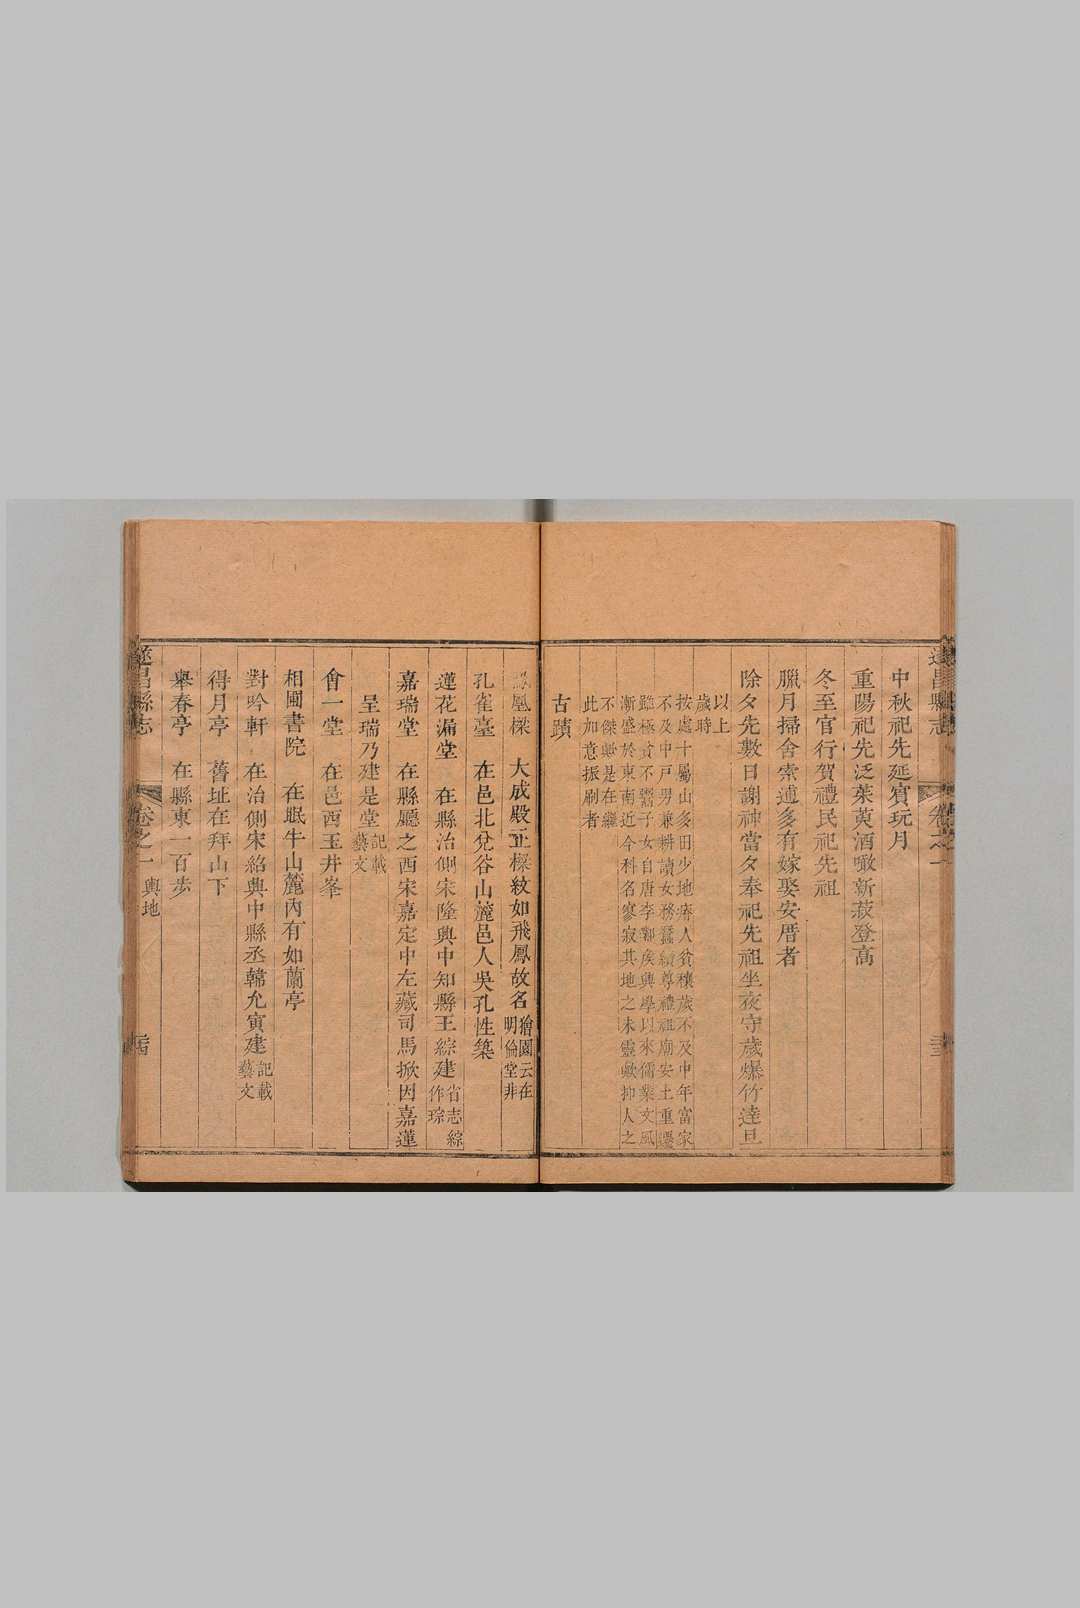 中秋祀先延賓玩月
重陽祀先泛茱萸酒噉新菽登高
冬至官行賀禮民祀先祖
臘月掃舍索逋多有嫁娶安厝者
除夕先數日謝神當夕奉祀先祖坐夜守歲爆竹達旦
以上
歲時
按處十屬山多田少地瘠人貧穰歲不及中年富家
不及中戸男兼耕讀女務蠶績尊禮祖廟安土重遷
雖極貧不鬻子女自唐李鄴侯興學以來儒業文風
漸盛於東南近今科名寥寂其地之未靈歟抑人之
不傑歟是在繼
此加意振刷者
古蹟
遂昌縣志
卷之一
鳳凰樑 大成殿正樑紋如飛鳳故名
獪園云在
明倫堂非
孔雀臺 在邑北兌谷山麓邑人吳孔性築
蓮花漏堂 在縣治側宋隆興中知縣王綜建
省志綜
作琮
嘉瑞堂 在縣廳之西宋嘉定中左藏司馬掀因嘉蓮
呈瑞乃建是堂
記載
藝文
會一堂 在邑西玉井峯
相圃書院 在眠牛山麓內有如蘭亭
對吟軒 在治側宋紹興中縣丞韓允寅建
記載
藝文
得月亭 舊址在拜山下
舉春亭 在縣東一百步
遂昌縣志
卷之一
輿地